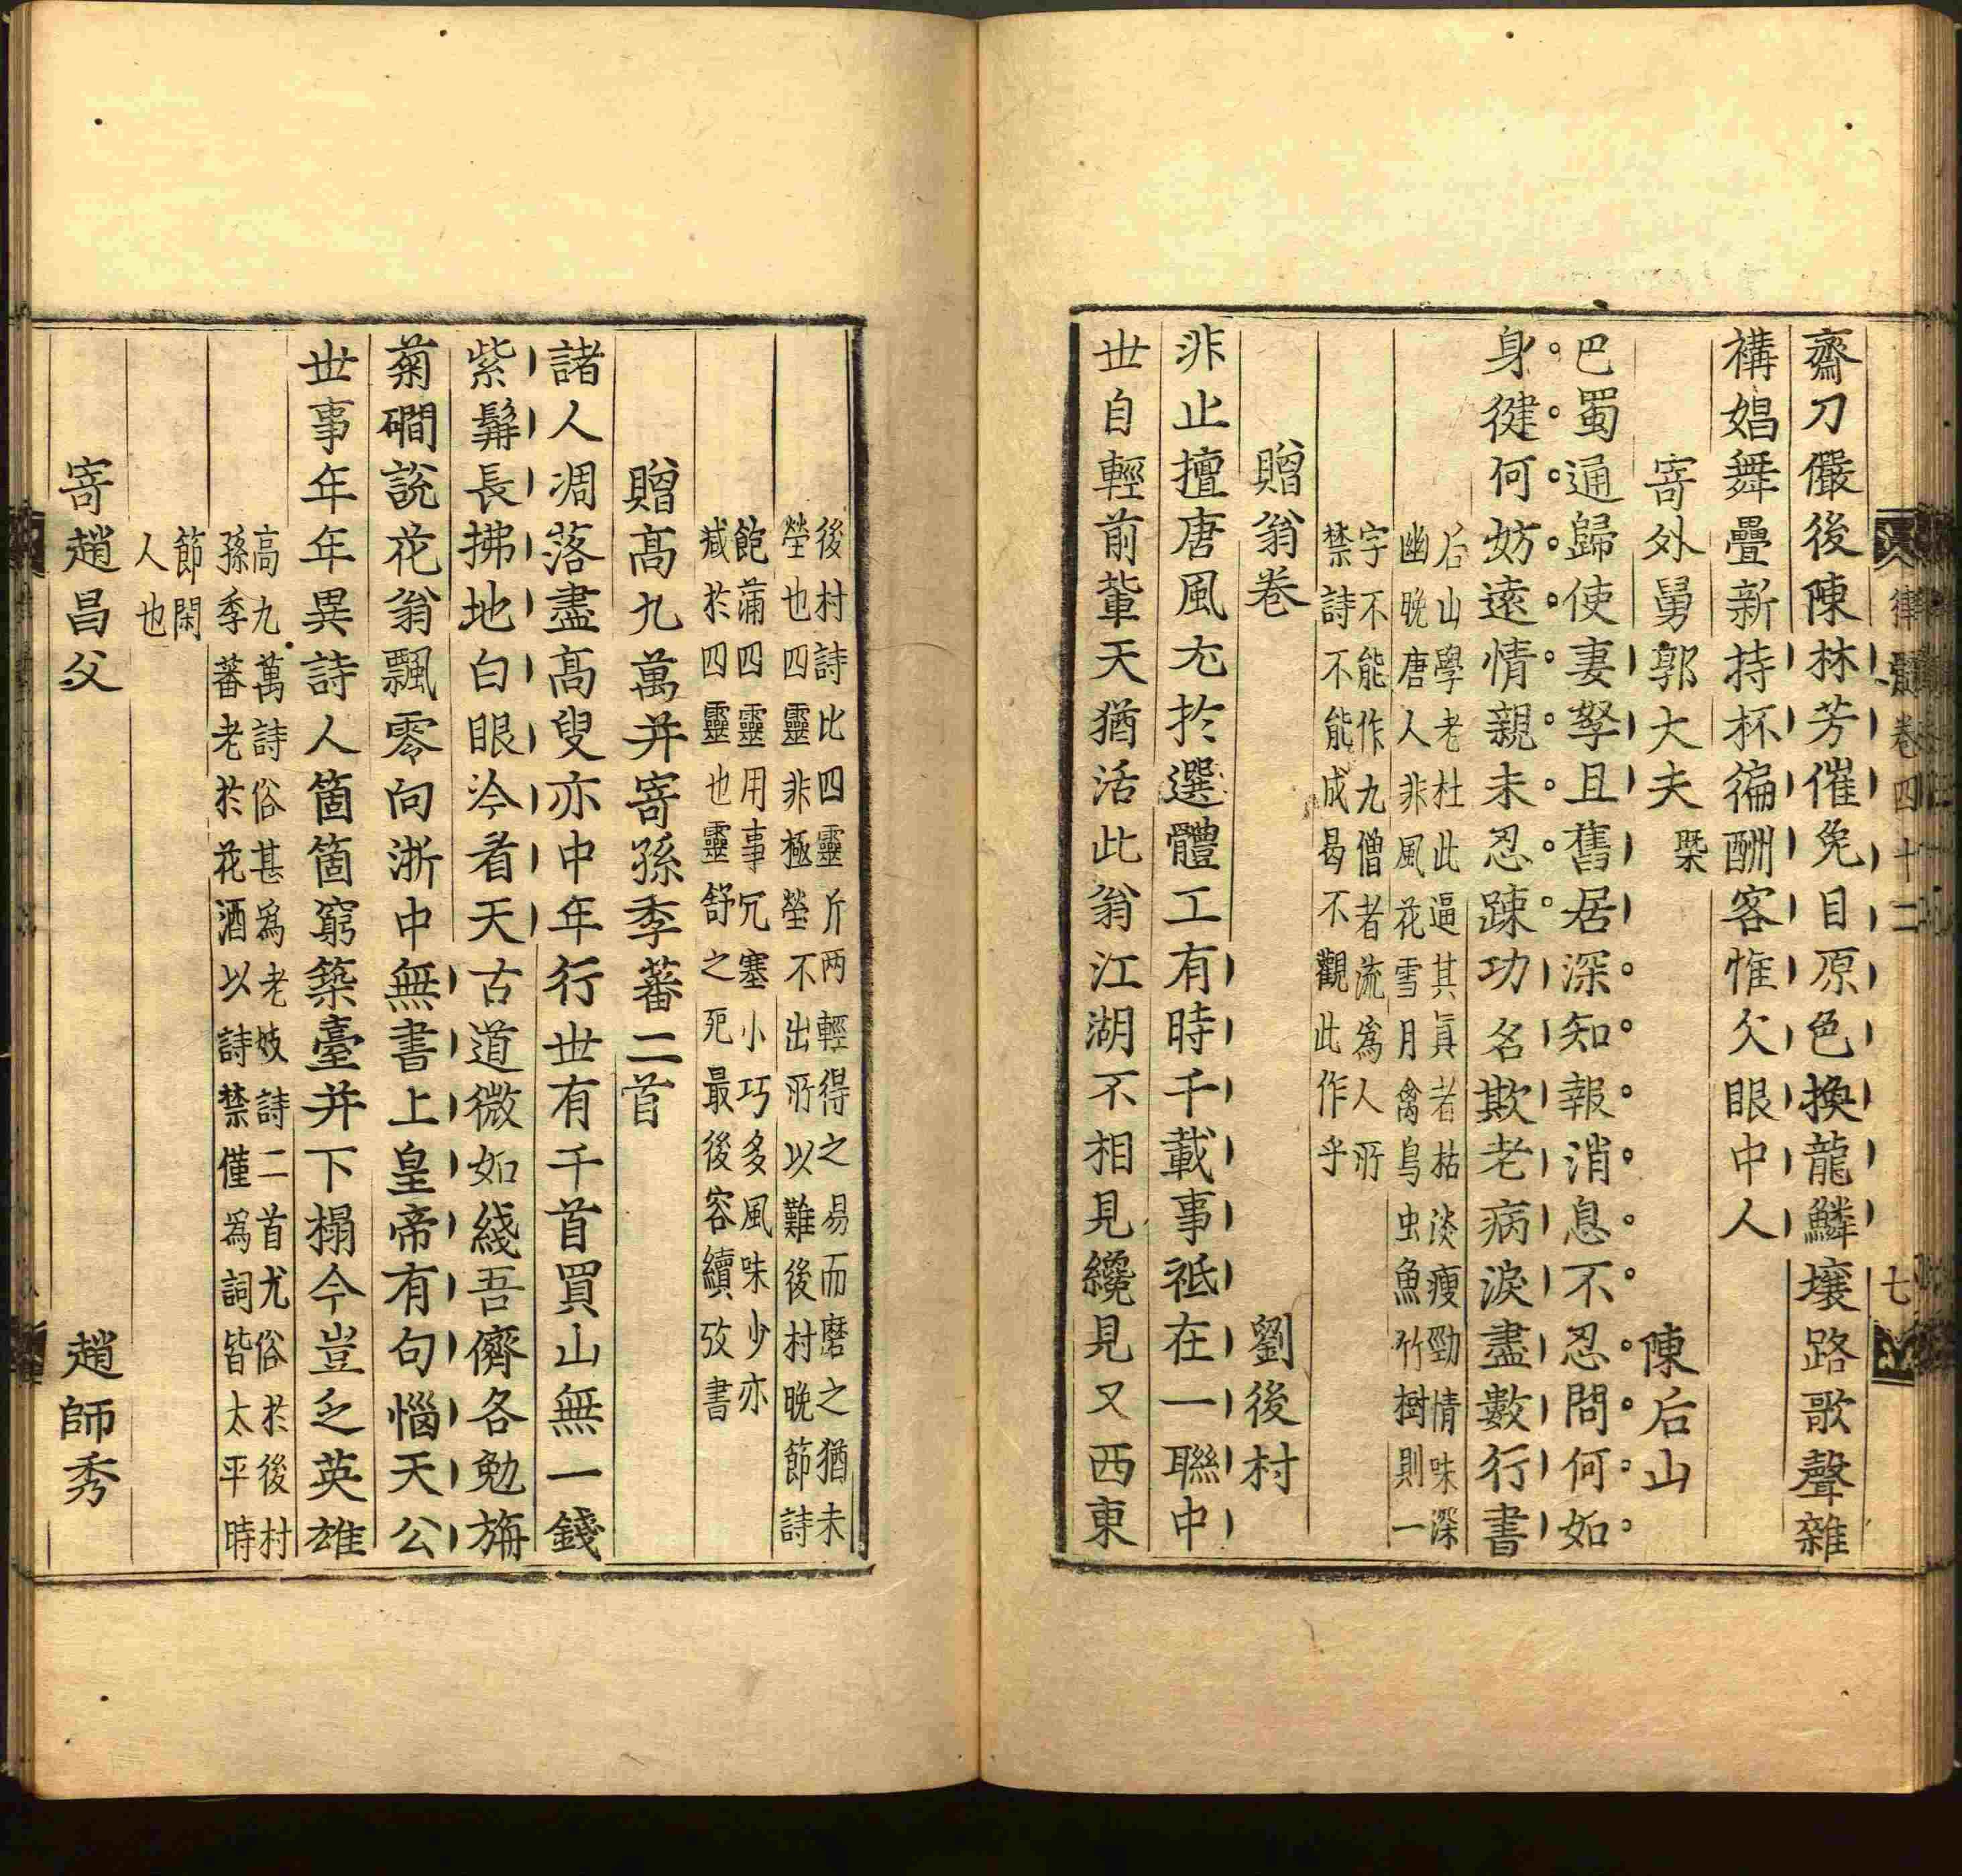 律髓卷四十二 七
齋刀儼後陳林芳催免目原色換龍鱗壤路歌聲雜
褠娼舞疊新持杯徧酬客惟欠眼中人
寄外舅郭大夫槩 陳后山
巴蜀通歸使妻孥且舊居深知報消息不忍問何如
身健何妨遠情親未忍踈功名欺老病淚盡數行書
后山學老杜此逼其真者枯淡瘦勁情味深
幽晚唐人非風花雪月禽鳥虫魚竹樹則一
字不能作九僧者流為人所
禁詩不能成曷不觀此作乎
贈翁卷 劉後村
非止擅唐風尤於選體工有時千載事祗在一聯中
世自輕前輩天猶活此翁江湖不相見纔見又西東
後村詩比四靈斤两輕得之易而磨之猶未
瑩也四靈非極瑩不出所以難後村晚節詩
飽滿四靈用事冗塞小巧多風味少亦
减於四靈也靈舒之死最後容續攷書
贈高九萬并寄孫季蕃二首
諸人凋落盡高叟亦中年行世有千首買山無一錢
紫髯長拂地白眼冷看天古道微如綫吾儕各勉旃
菊磵說花翁飄零向浙中無書上皇帝有句惱天公
世事年年異詩人箇箇窮築臺并下榻今豈乏英雄
高九萬詩俗甚為老妓詩二首尤俗於後村
孫季蕃老於花酒以詩禁僅為詞皆太平時
節閑
人也
寄趙昌父 趙師秀